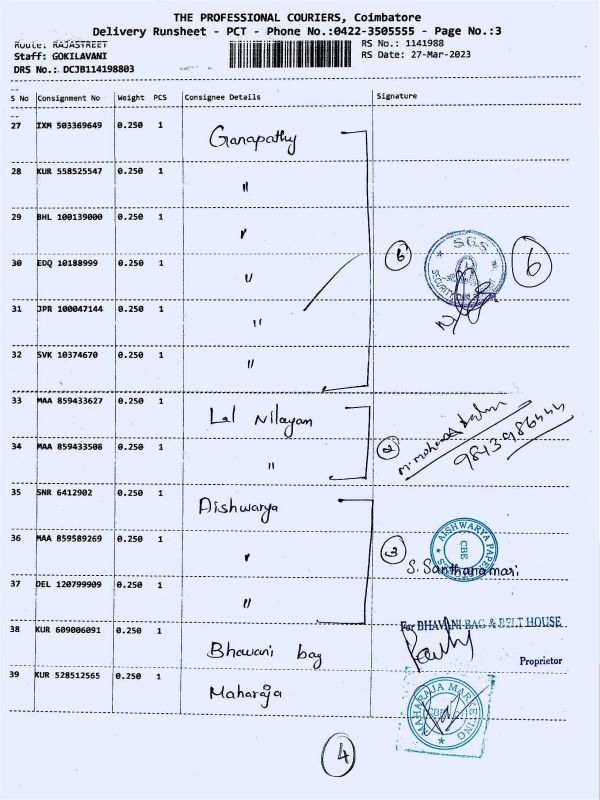 THE PROFESSIONAL COURIERS, Coimbatore
Delivery Runsheet - PCT - Phone No.:0422-3505555 - Page No.:3
Route: RAJASTREET
RS No.: 1141988
Staff: GOKILAVANI
RS Date: 27-Mar-2023
DRS No.: DCJB114198803
S No Consignment No Weight PCS Consignee Details Signature
27 IXM 503369649 0.250 1 Ganapathy
28 KUR 558525547 0.250 1 "
29 BHL 100139000 0.250 1 "
30 EDQ 10188999 0.250 1 "
6 SGS SECURITY 6
31 JPR 100047144 0.250 1 "
32 SVK 10374670 0.250 1 "
33 MAA 859433627 0.250 1 Lal Nilayam
34 MAA 859433508 0.250 1 "
2 M. 9843986444
35 SNR 6412902 0.250 1 Aishwarya
36 MAA 859589269 0.250 1 "
3 AISHWARYA PAPER CBE
S. Santhanamari
37 DEL 120799909 0.250 1 "
For BHAVANI BAG & BELT HOUSE
38 KUR 609006091 0.250 1 Bhavani bag
Proprietor
39 KUR 528512565 0.250 1 Maharaja
MAHARAJA MARKETING CBE
4